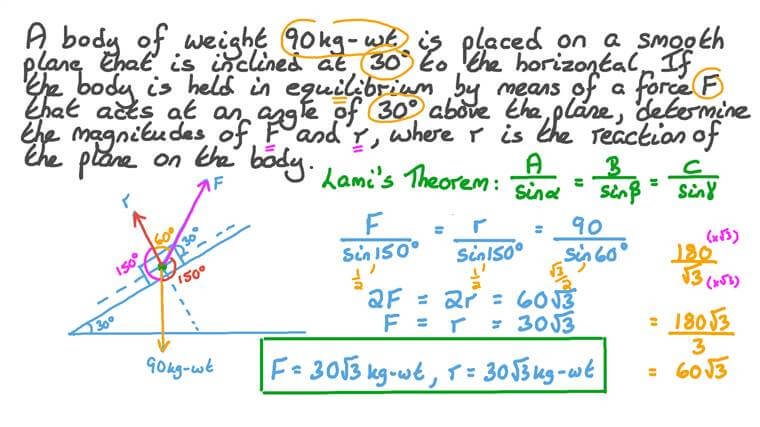 A body of weight 90kg-wt is placed on a smooth
plane that is inclined at 30° to the horizontal. If
the body is held in equilibrium by means of a force F
that acts at an angle of 30° above the plane, determine
the magnitudes of F and r, where r is the reaction of
the plane on the body.
Lami's Theorem: A/sinα = B/sinβ = C/sinγ
F/sin150° = r/sin150° = 90/sin60°
1/2 1/2 √3/2
2F = 2r = 60√3
F = r = 30√3
F = 30√3 kg-wt, r = 30√3 kg-wt
180/√3 (x√3) (x√3)
= 180√3/3
= 60√3
r
F
60°
30°
150°
150°
30°
90kg-wt